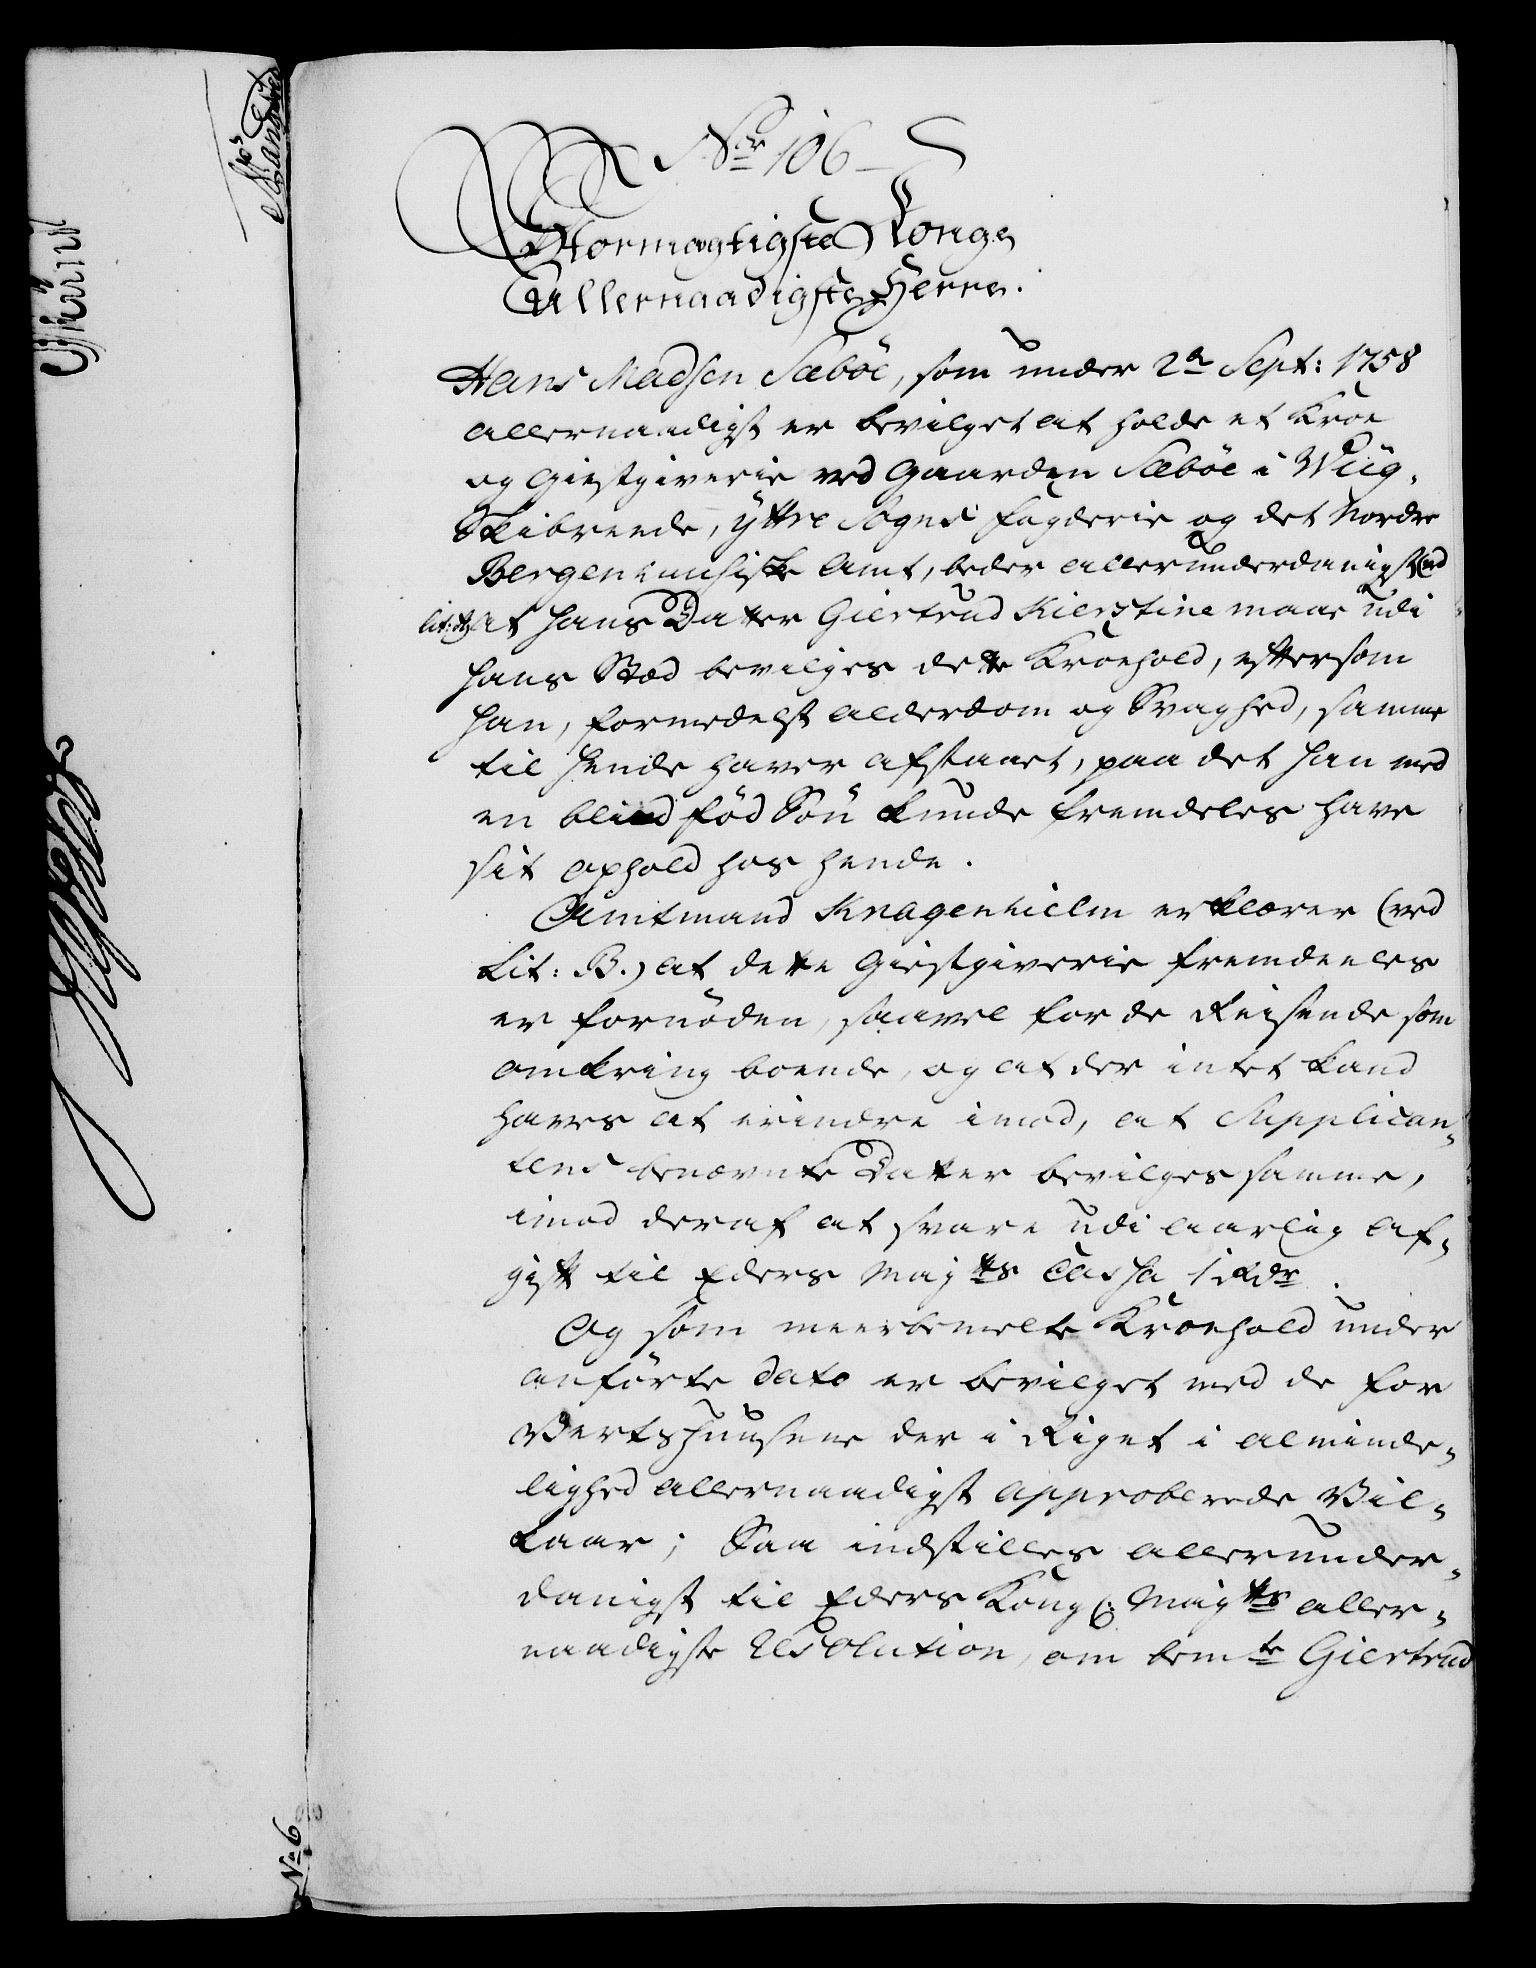 Nr 106
Stormægtigste Konge
Allernaadigste Herre.
Hans Madsen Sæbøe, som under 2n Sept: 1758
allernaadigst er bevilget at holde et Kroe
og Giestgiverie ved Gaarden Sæbøe i Wiig¸
Skibreede, ÿttre Sogns fogderie og det Nordre
Bergenhuusiske Amt, beder allerunderdanigst (ved
lit: A) at hans Datter Giertrud Kierstine maae udi
hans Stæd bevilges dette Kroehold, eftersom
han, formedelst alderdom og Svaghed, samme
til hende haver afstaaet, paa det han med
en blind fød Søn kunde fremdeles have
sit ophold hos hende.
Amtmand Knagenhielm erklærer (ved
Lit: B.) at dette Giestgiverie fremdeeles
er fornøden, saavel for de Reisende som
omkring boende, og at der intet kand
haves at erindre imod, at Supplican¸
tens benævnte Datter bevilges samme,
imod deraf at svare udi aarlig Af¸
gift til Eders Majts Cassa 1 Rdr.
Og som meerbemelte Kroehold under
anførte dato er bevilget med de for
Vertshuusene der i Riget i alminde¸
lighed allernaadigst approberede Vil¸
kaar; Saa indstilles allerunder¸
danigst til Eders Kongl: Majts aller¸
naadigste Resolution, om bemte Giertrud
No 6